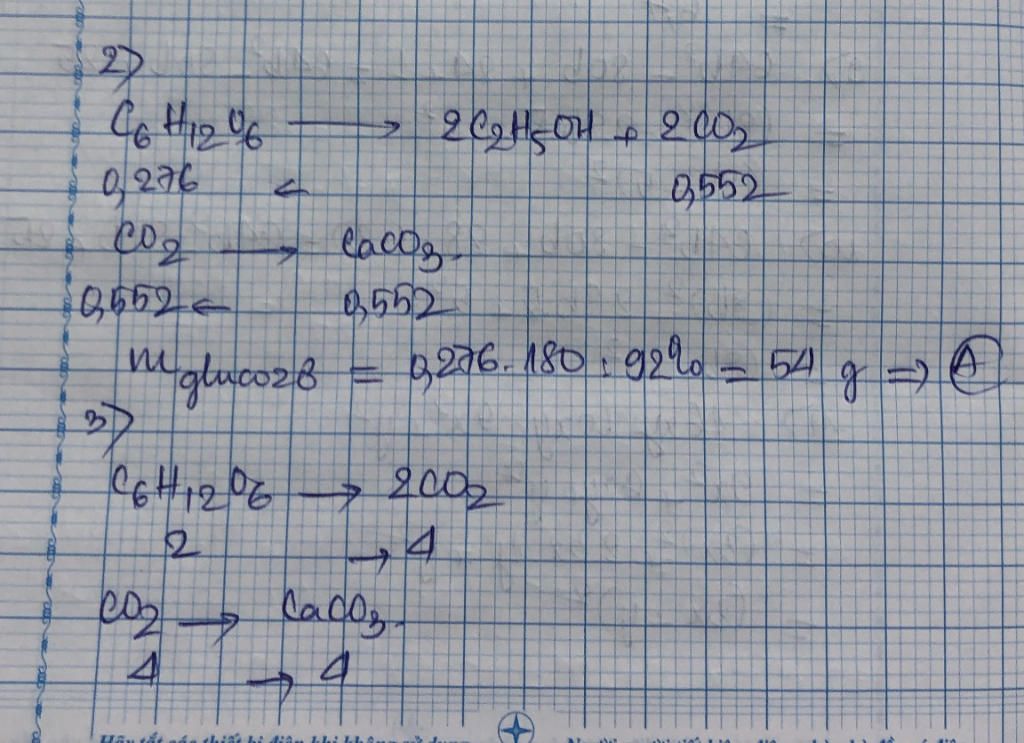 2)
C6H12O6 → 2C2H5OH + 2CO2
0,276 ← 0,552
CO2 → CaCO3.
0,552 ← 0,552
m glucozơ = 0,276. 180 : 92% = 54 g => A
3)
C6H12O6 → 2CO2
2 → 4
CO2 → CaCO3.
4 → 4
Hãy tắt các thiết bị điện khi không sử dụng